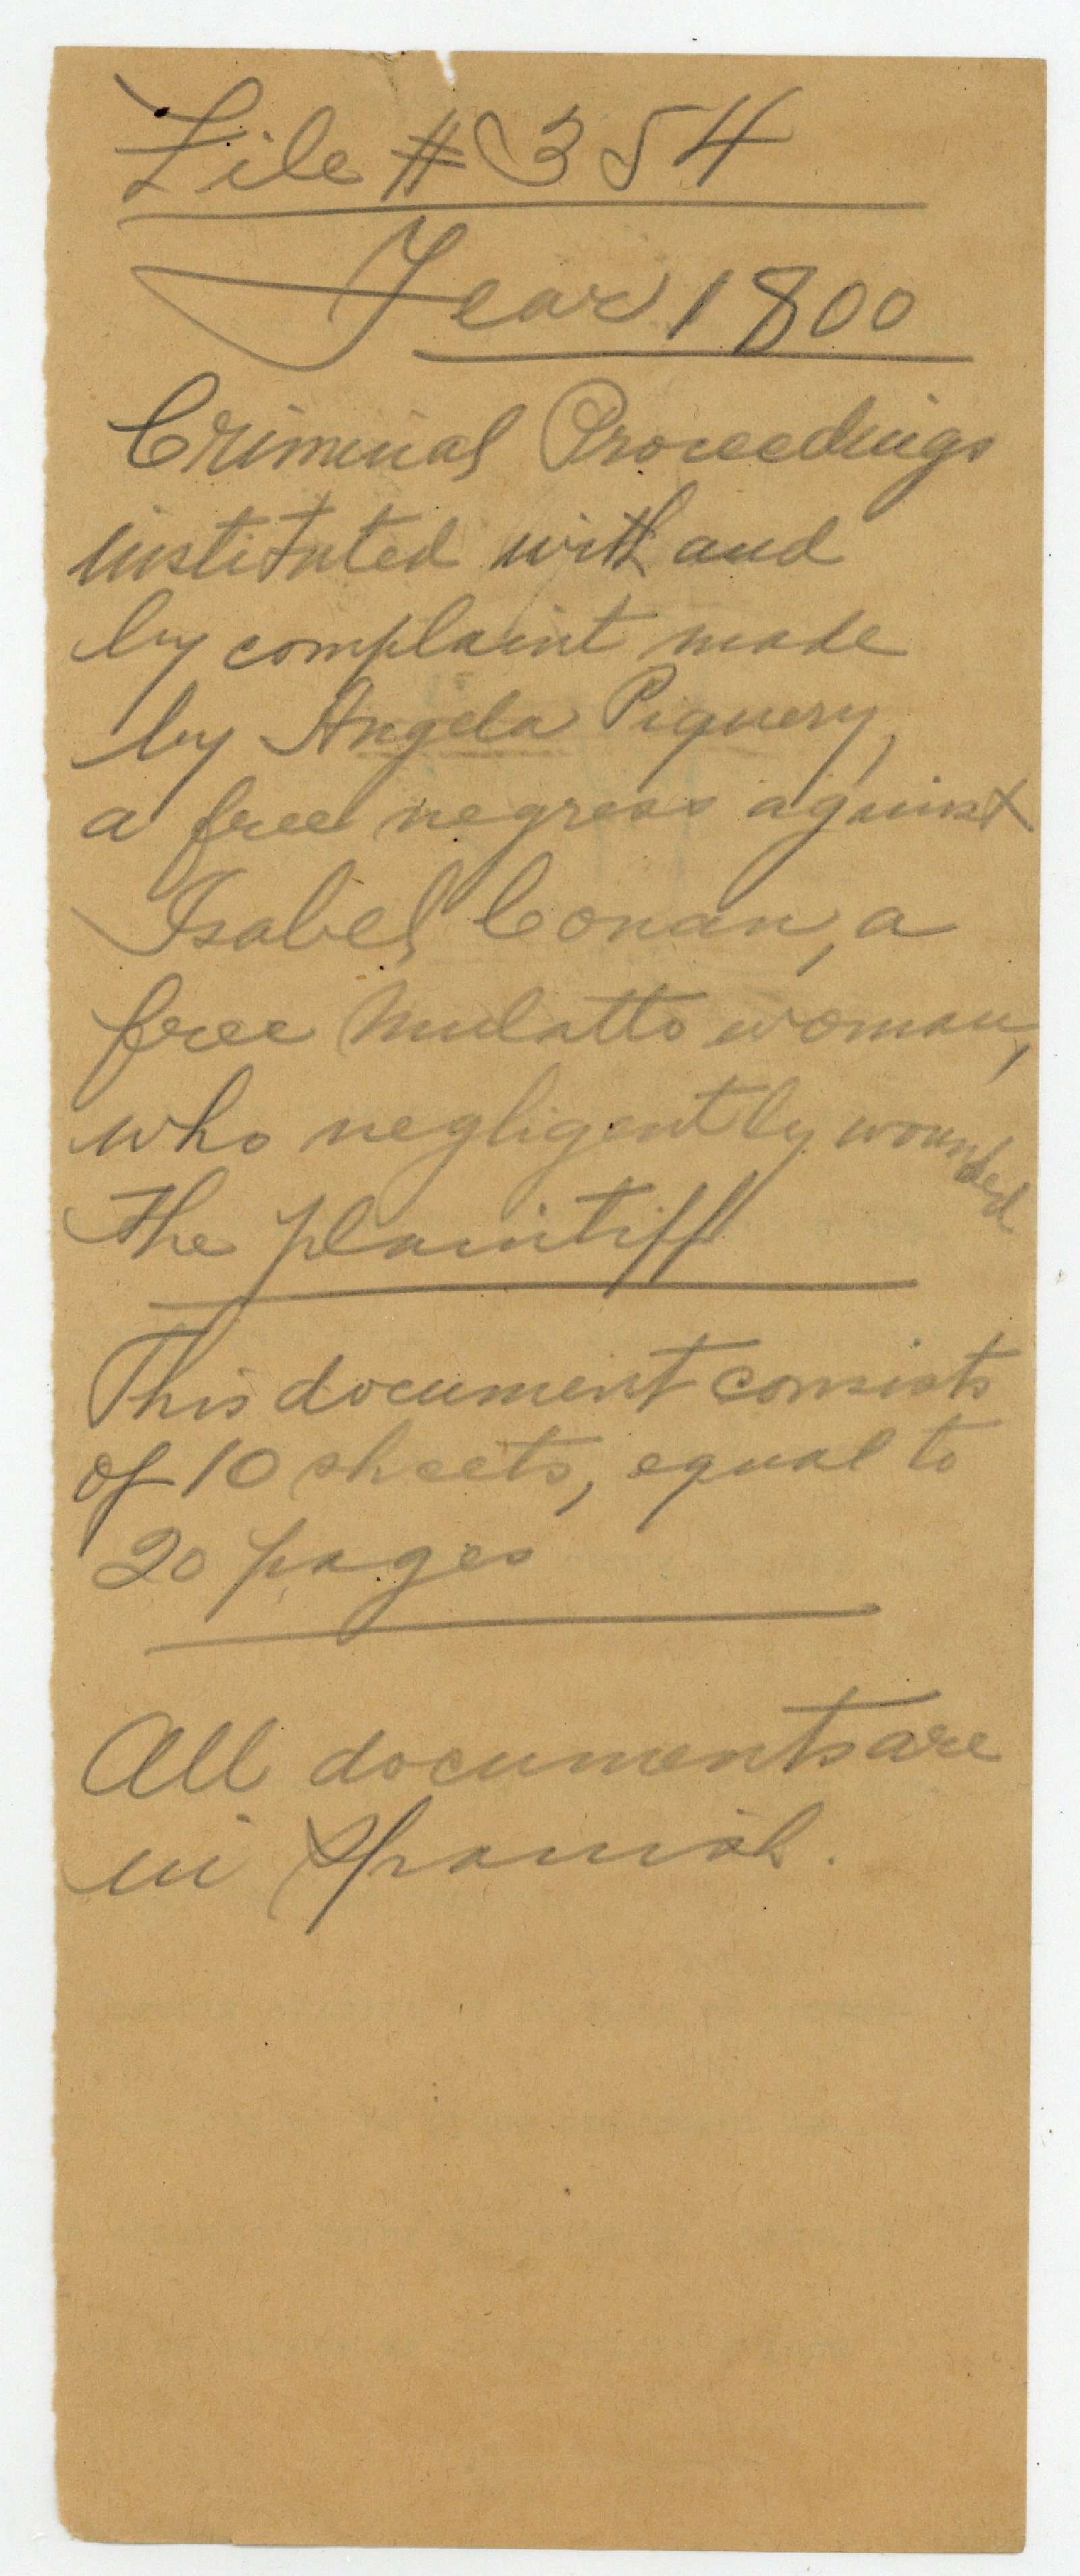 File # 354
Year 1800
Criminal Proceedings
instituted with and
by complaint made
by Angela Piquery,
a free negress against
Isabel Conan, a
free Mulatto woman,
who negligently wounded
the plaintiff
This document consists
of 10 sheets, equal to
20 pages
All documents are
in Spanish.